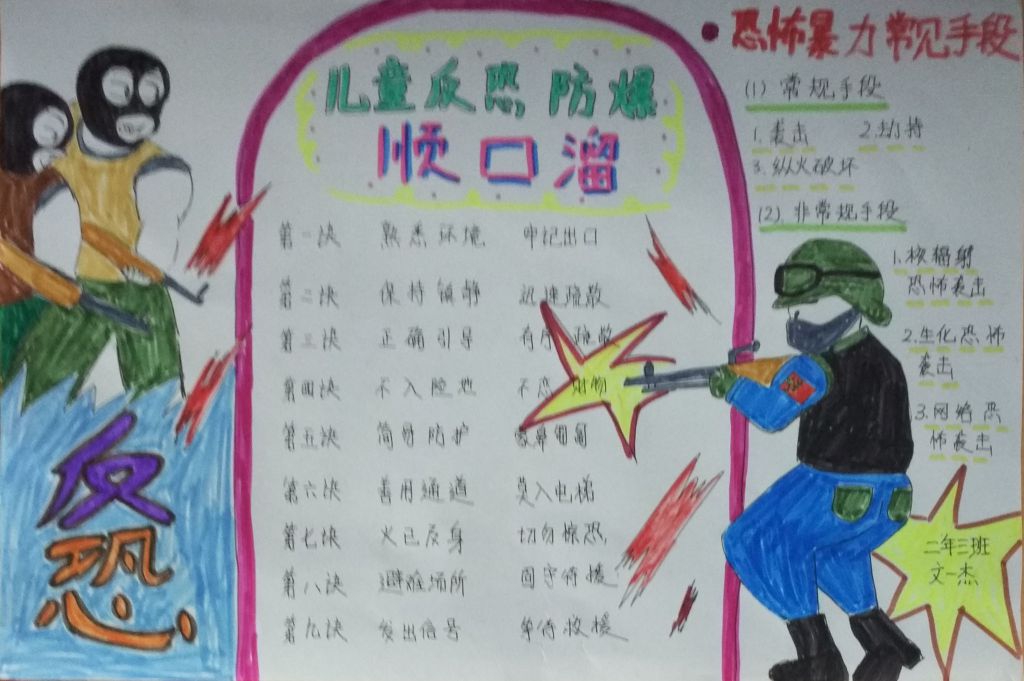 儿童反恐防爆
顺口溜
第一决 熟悉环境 牢记出口
第二决 保持镇静 迅速疏散
第三决 正确引导 有序疏散
第四决 不入险地 不恋财物
第五决 简易防护
第六决 善用通道 莫入电梯
第七决 火已及身 切勿惊恐
第八决 避险场所 固守待援
第九决 发出信号 等待救援
反恐
恐怖暴力常见手段
(1) 常规手段
1.袭击 2.劫持
3.纵火破坏
(2).非常规手段
1.核辐射
恐怖袭击
2.生化恐怖
袭击
3.网络恐
怖袭击
二年三班
文一杰